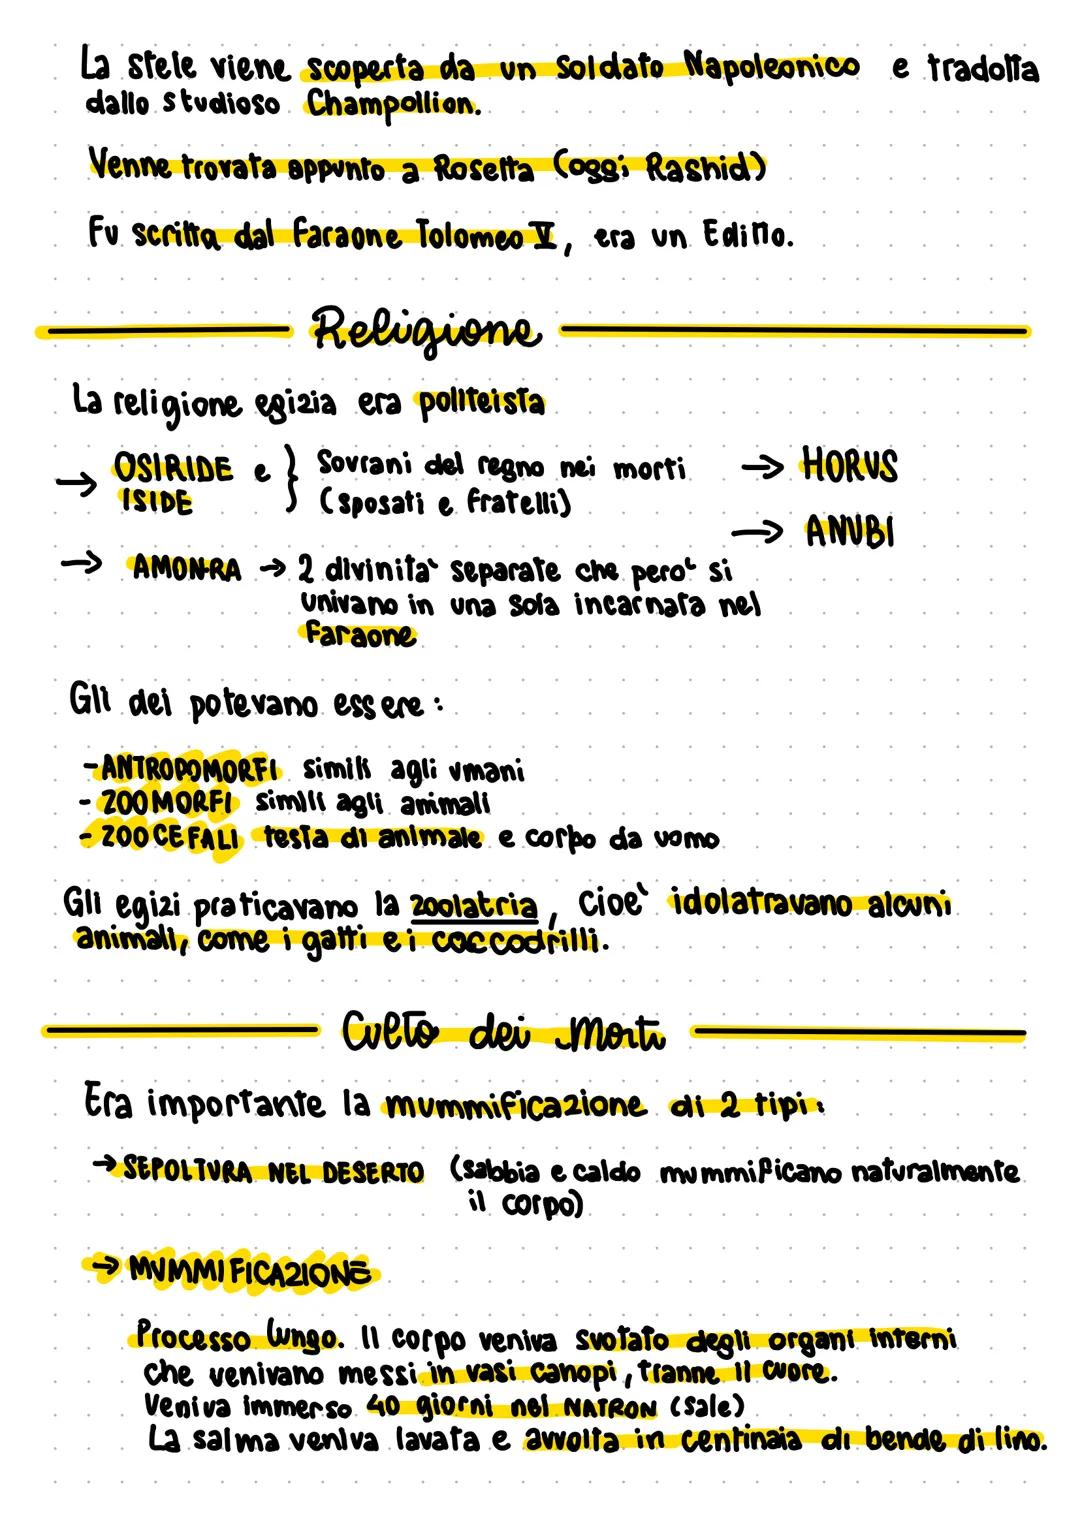 La stele viene scoperta da un Soldato Napoleonico e tradotta
dallo studioso Champollion.
Venne trovata appunto a Rosetta (oggi Rashid)
Fu scritta dal Faraone Tolomeo V, era un Editto.
Religione
La religione egizia era politeista
→ OSIRIDE e } Sovrani del regno nei morti
ISIDE (sposati e fratelli)
→ HORUS
→ ANUBI
→ AMON-RA → 2 divinita' separate che pero' si
univano in una sola incarnata nel
Faraone
Gli dei potevano essere:
- ANTROPOMORFI simili agli umani
- ZOOMORFI simili agli animali
- ZOOCEFALI testa di animale e corpo da uomo
Gli egizi praticavano la zoolatria, Cioe' idolatravano alcuni
animali, come i gatti e i coccodrilli.
Culto dei Morti
Era importante la mummificazione di 2 tipi:
→ SEPOLTURA NEL DESERTO (sabbia e caldo mummificano naturalmente
il corpo)
→ MUMMIFICAZIONE
Processo lungo. Il corpo veniva svotato degli organi interni
che venivano messi in vasi canopi, tranne il cuore.
Veniva immerso 40 giorni nel NATRON (Sale)
La salma veniva lavata e avvolta in centinaia di bende di lino.